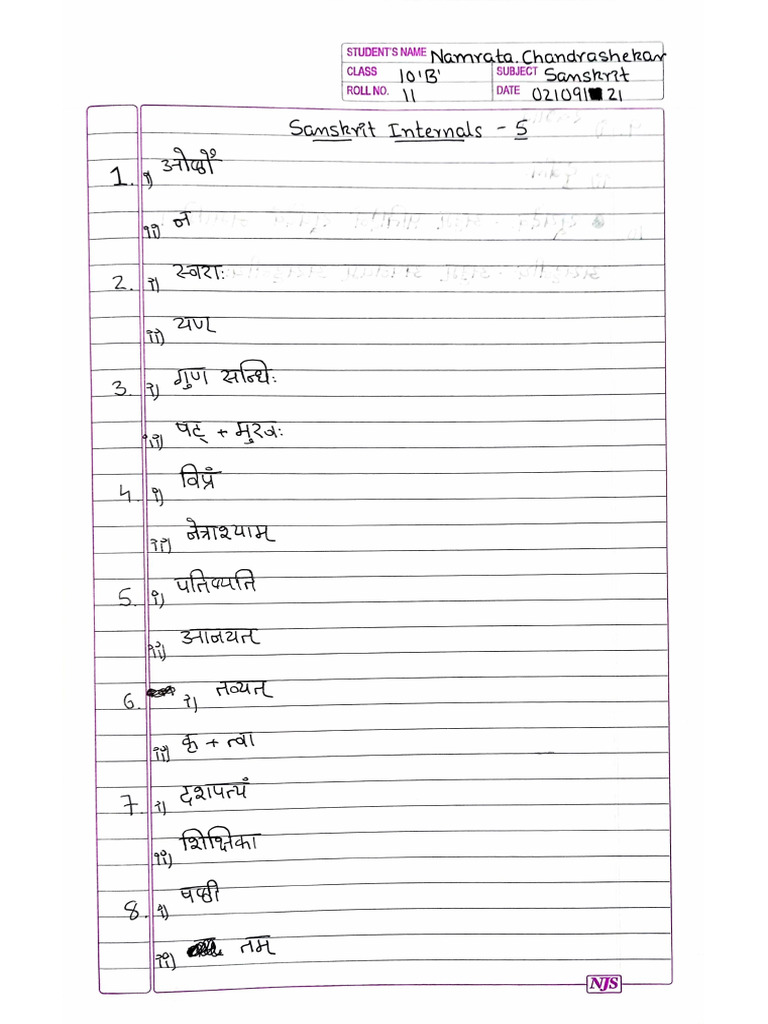 STUDENT'S NAME Namrata. Chandrashekar
CLASS 10 'B' SUBJECT Sanskrit
ROLL NO. 11 DATE 02/09/21
Sanskrit Internals - 5
1. i) ओष्ठौ
ii) न
2. i) स्वराः
ii) यण्
3. i) गुण सन्धिः
ii) षट् + मुखः
4. i) विप्रं
ii) नेत्राश्याम्
5. i) पतिष्यति
ii) आनयत्
6. i) तव्यत्
ii) कृ + त्वा
7. i) दशपत्यं
ii) शिक्षिका
8. i) षष्ठी
ii) तम्
NJS